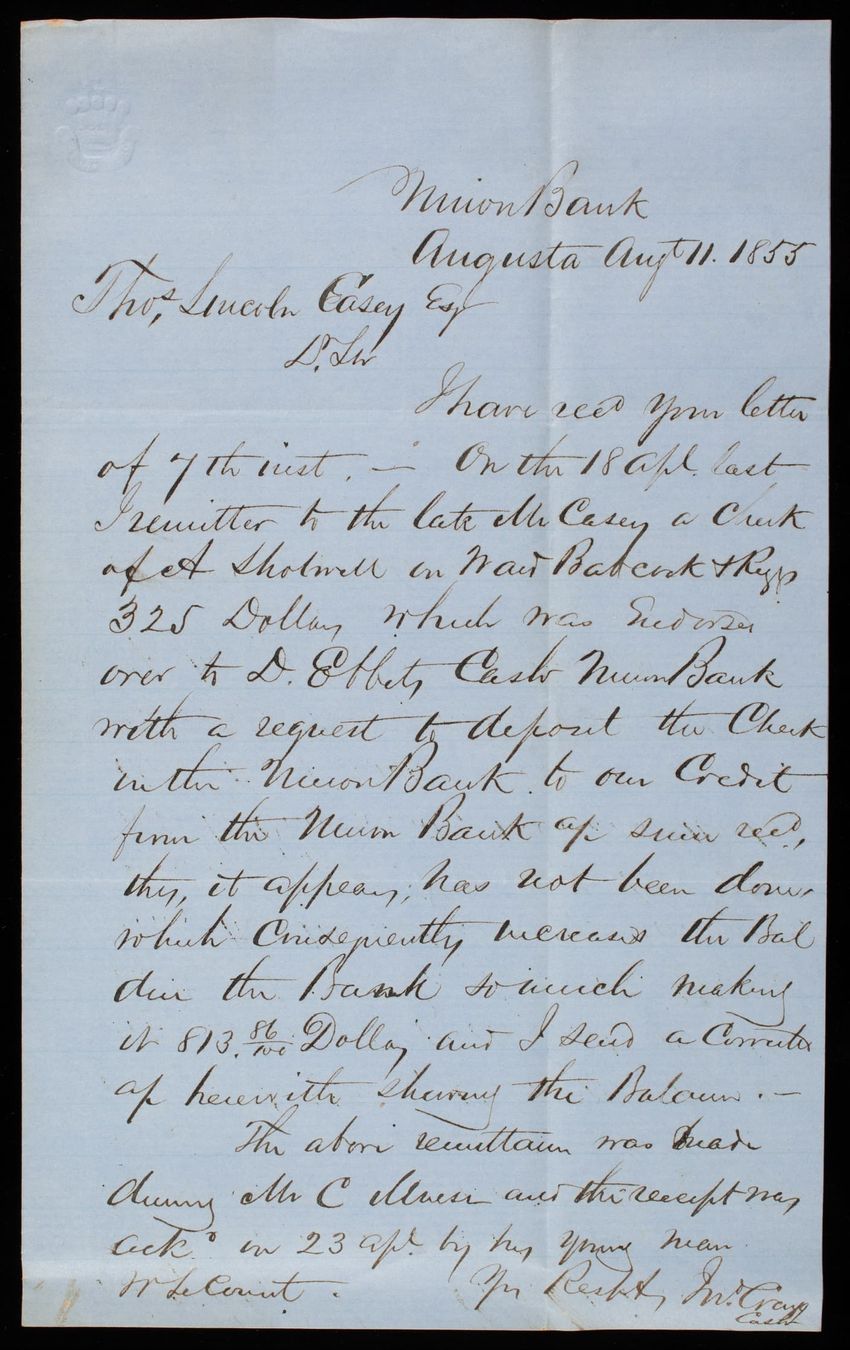 Union Bank
Augusta Augt 11. 1855
Thos, Lincoln Casey Esqr
Dr. Sir
I have recd your letter
of 7th inst. — On the 18 apl. last
I remitted to the late Mr Casey a Check
of A Shotwell on Ward Babcock &
325 Dollars which was Endorsed
over to D. Ebbets Cashr Union Bank
with a request to deposit the Check
in the Union Bank to our Credit
from the Union Bank a/c since recd,
this, it appears, has not been done,
which Consequently increases the Bal
due the Bank so much making
it 813. 86/100 Dollars and I send a Corrected
a/c herewith shewing the Balance. —
The above remittance was made
during Mr C illness and the receipt was
ackd on 23 apl. by his young man
Le Count. Yr Respy, Jno. Craig
Cashr